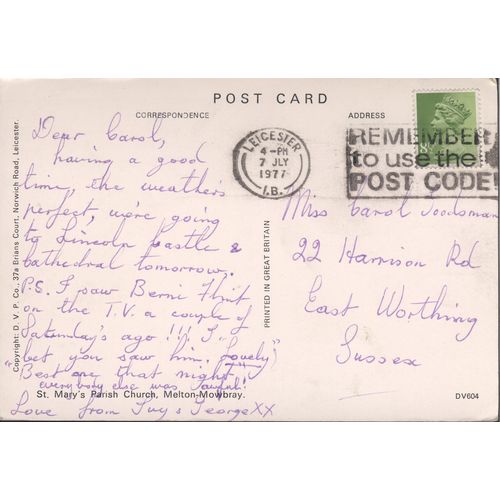 POST CARD
CORRESPONDENCE
ADDRESS
Dear Carol,
having a good
time, the weather's
perfect, we're going
to Lincoln Castle &
Cathedral tomorrow.
P.S. I saw Berni Flint
on the T.V. a couple of
Saturday's ago !!! I
bet you saw him. Lovely
"Best one that night"
everybody else was "awful!"
Love from Ivy & George XX
LEICESTER
4-PM
7 JLY
1977
I.B.
REMEMBER
to use the
POST CODE
8
Miss Carol
22 Harrison Rd
East Worthing
Sussex
PRINTED IN GREAT BRITAIN
Copyright: D. V. P. Co., 37a Brians Court, Norwich Road, Leicester.
St. Mary's Parish Church, Melton-Mowbray.
DV604